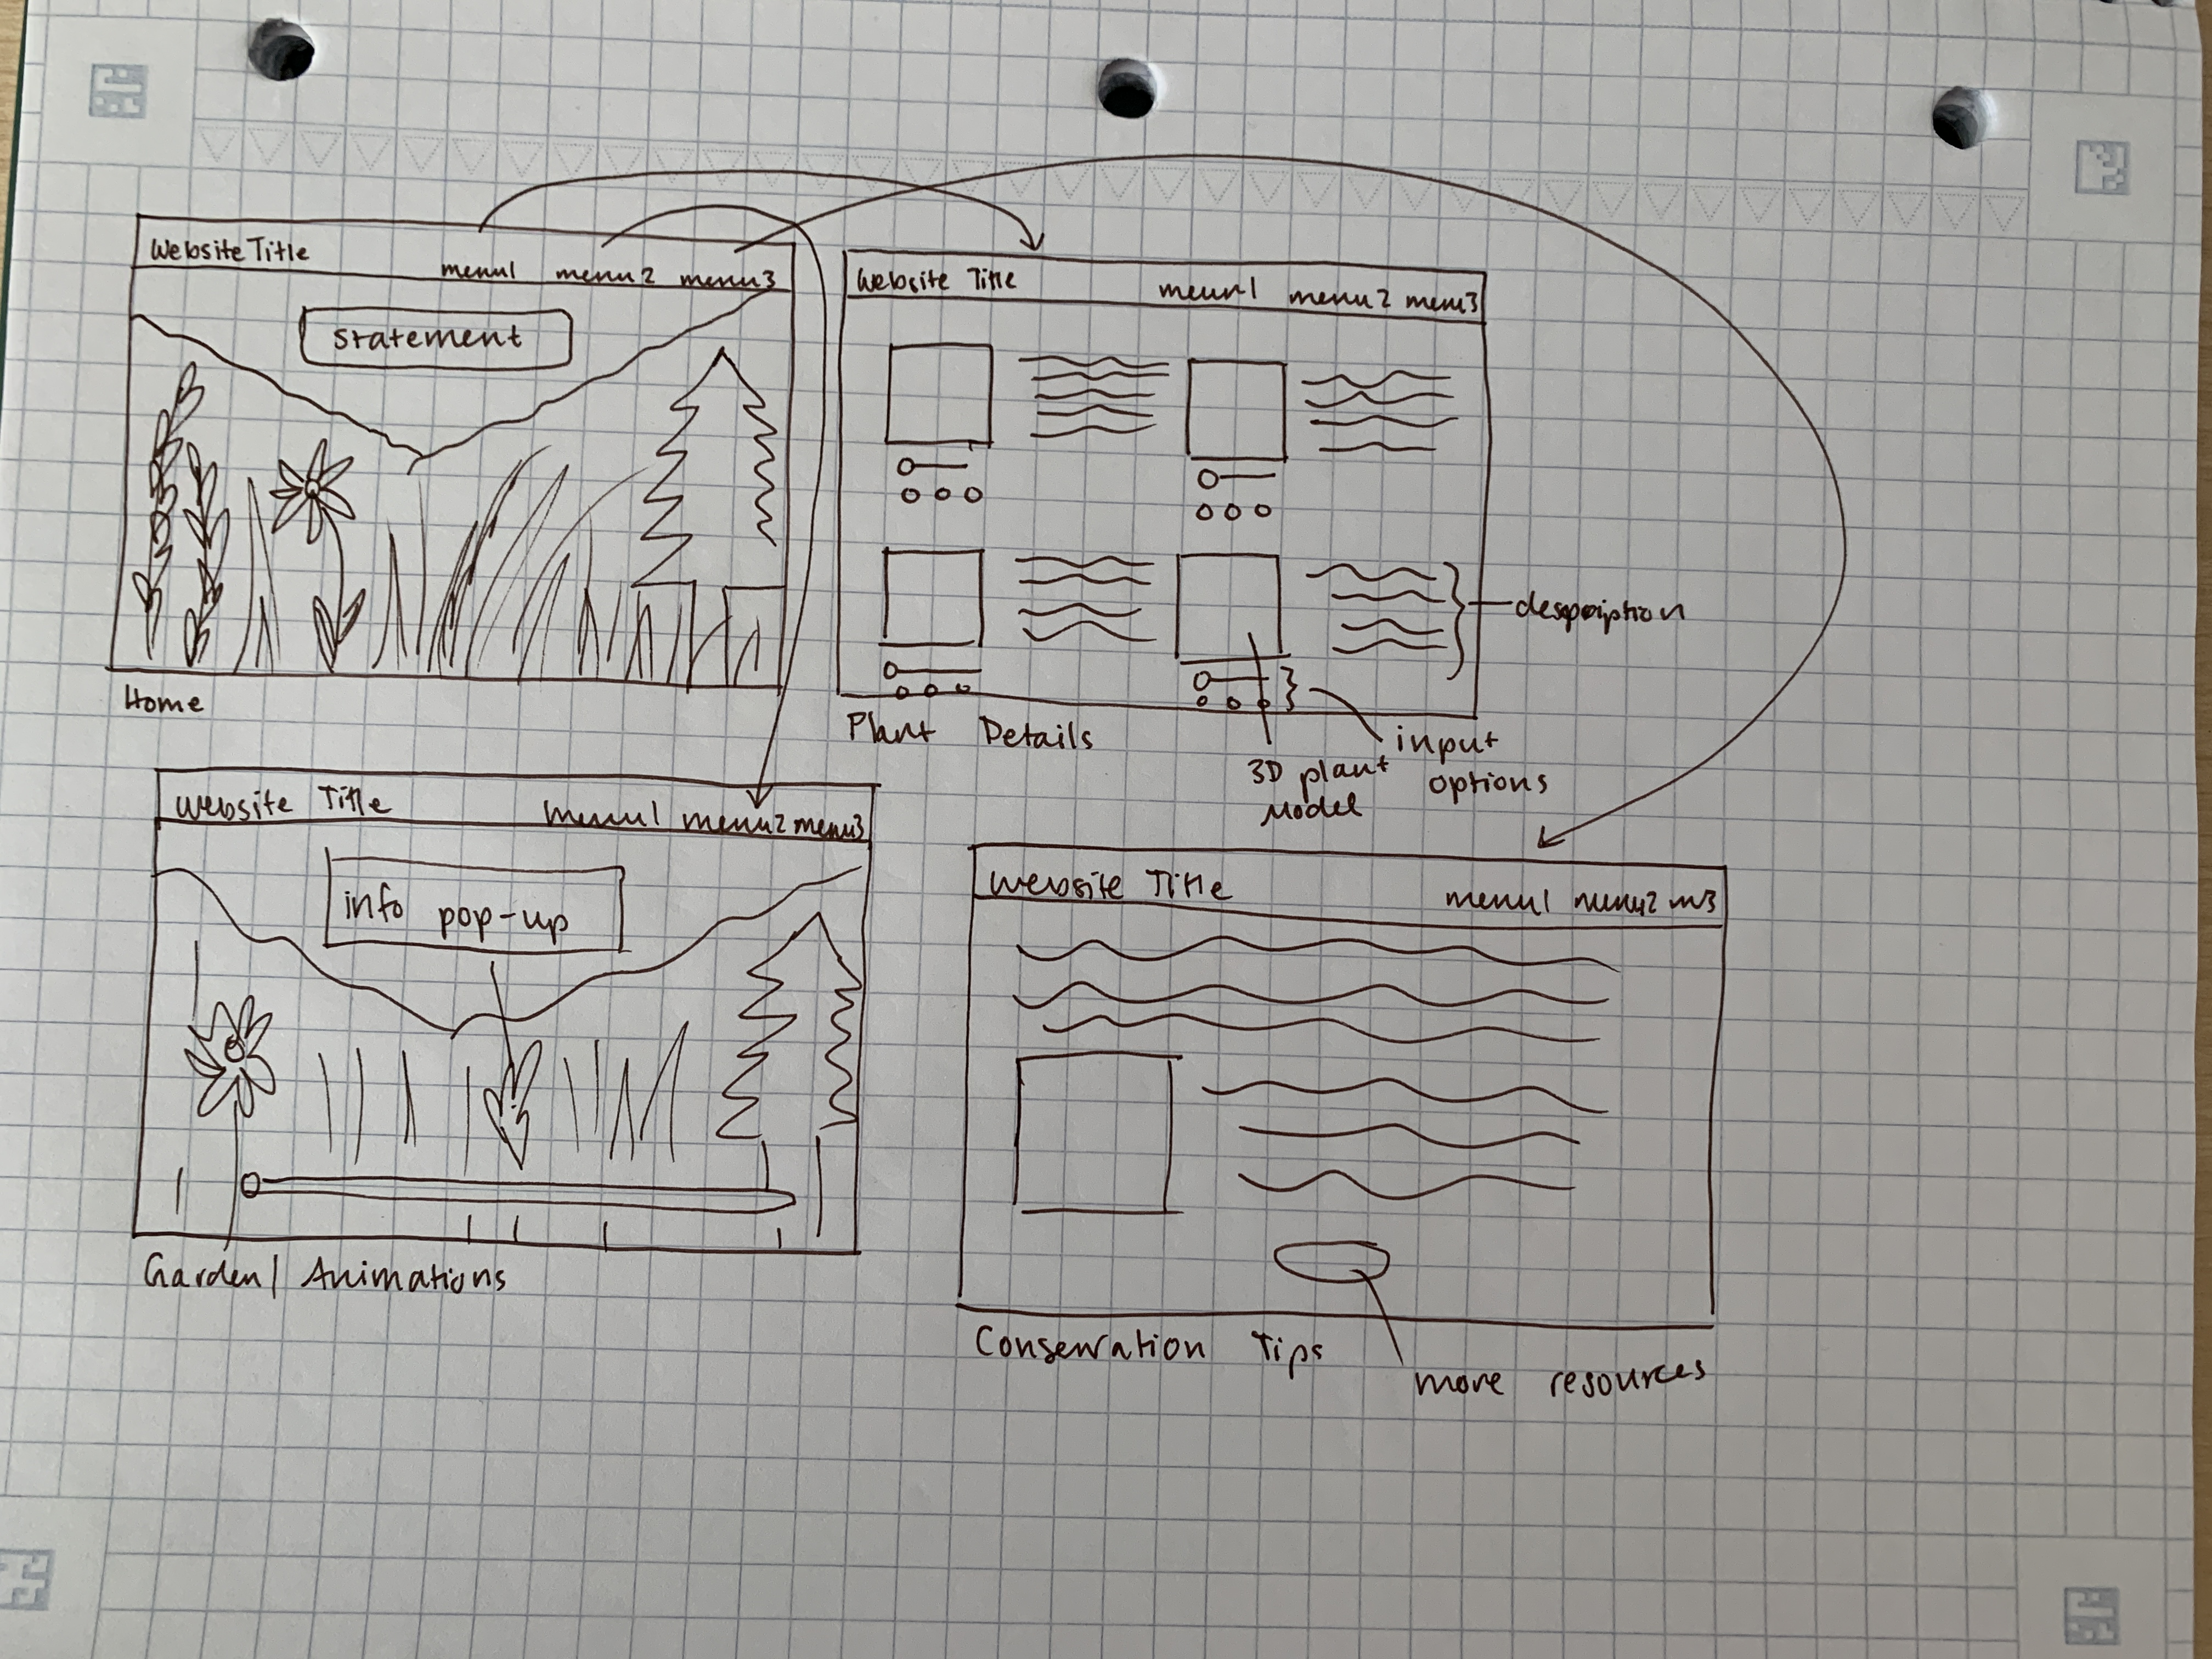 Website Title
menu1 menu2 menu3
statement
Home
Website Title
menu1 menu2 menu3
description
Plant Details
3D plant
model
input
options
Website Title
menu1 menu2 menu3
info pop-up
Garden/Animations
Website Title
menu1 menu2 m3
Conservation Tips
more resources